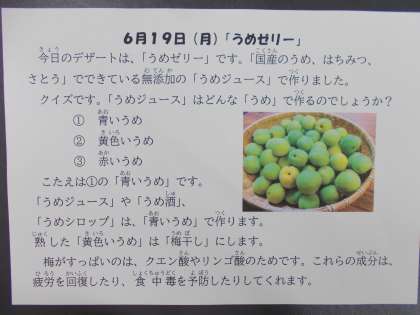 6月19日（月）「うめゼリー」
今日のデザートは、「うめゼリー」です。「国産のうめ、はちみつ、
さとう」でできている無添加の「うめジュース」で作りました。
クイズです。「うめジュース」はどんな「うめ」で作るのでしょうか？
① 青いうめ
② 黄色いうめ
③ 赤いうめ
こたえは①の「青いうめ」です。
「うめジュース」や「うめ酒」、
「うめシロップ」は、「青いうめ」で作ります。
熟した「黄色いうめ」は「梅干し」にします。
梅がすっぱいのは、クエン酸やリンゴ酸のためです。これらの成分は、
疲労を回復したり、食中毒を予防したりしてくれます。